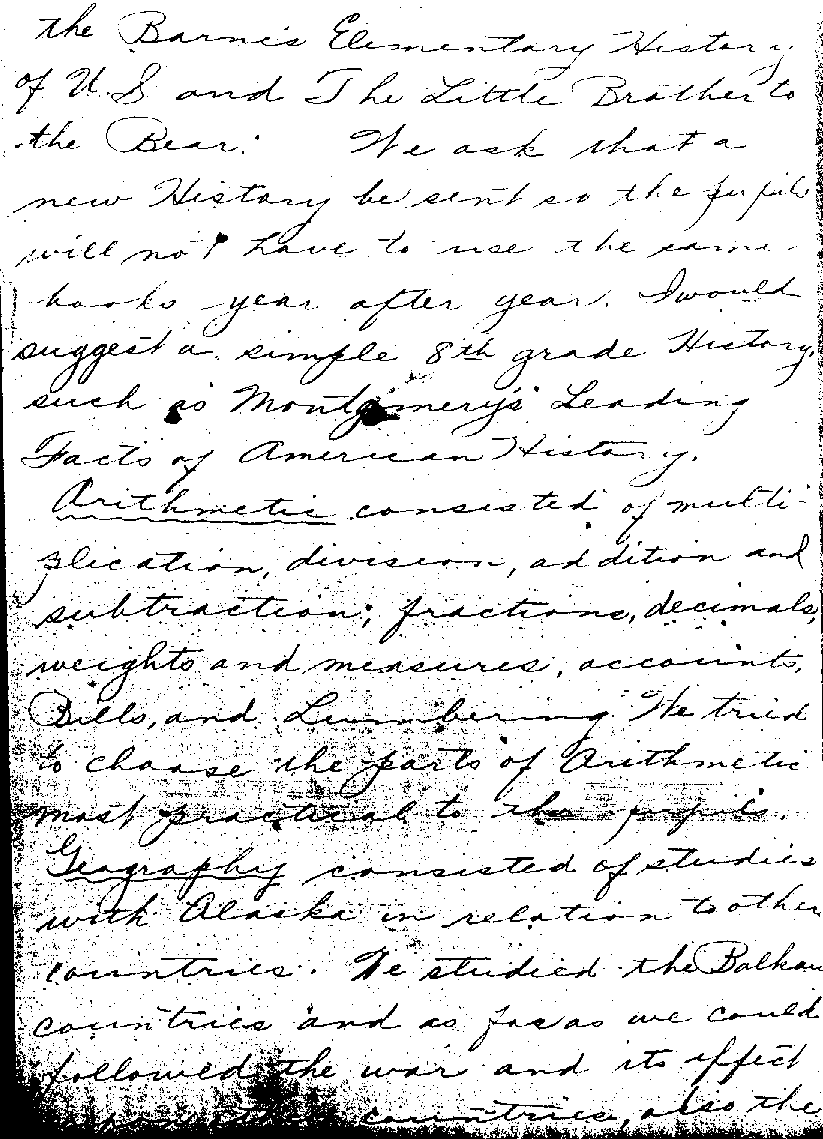 the Barne's Elementary History
of U.S and The Little Brother to
the Bear. We ask that a
new History be sent so the pupils
will not have to use the same
books year after year. I would
suggest a simple 8th grade History,
such as Montgomery's Leading
Facts of American History.
Arithmetic consisted of multi-
plication, division, addition and
subtraction; fractions, decimals,
weights and measures, accounts,
Bills, and Lumbering. We tried
to choose the parts of Arithmetic
most practical to the pupils.
Geography consisted of studies
with Alaska in relation to other
countries. We studied the Balkan
countries and as far as we could
followed the war and its effect
countries, also the